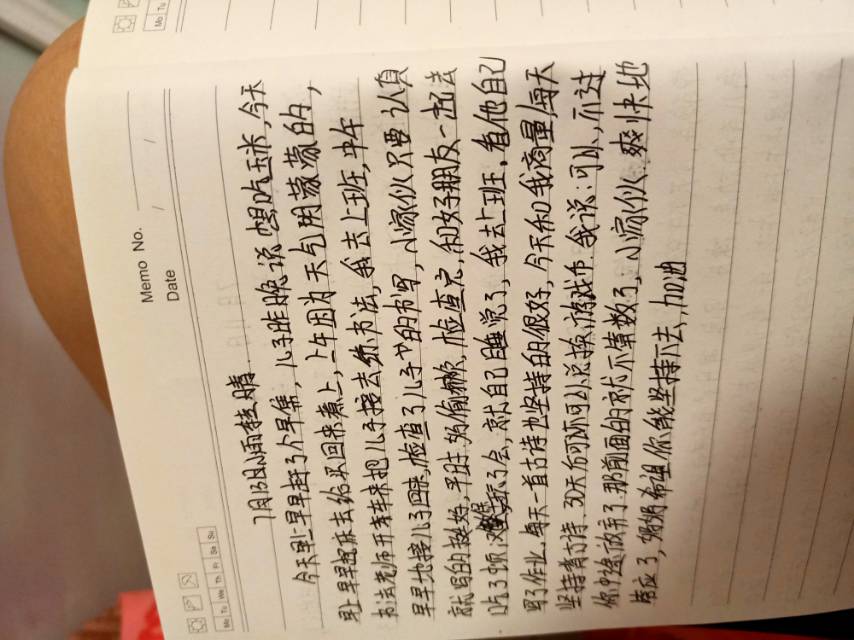 Memo No.
Date / /
Mo Tu We Th Fr Sa Su
Mo Tu
7月13日小雨转晴
今天早上早早赶了个早集,儿子昨晚说想吃玉米,今天
早上早早起床去给买回来煮上,上午因为天气阴蒙蒙的,
书法老师开车来把儿子接去练书法,我去上班,中午
早早地接儿子回来,检查了儿子的书写,小家伙只要认真
就写的挺好,平时偷懒,检查完,和好朋友一起去
吃了顿,了会,就自己睡觉了,我去上班,看他自己
写了作业,每天一首古诗也坚持的很好,今天和我商量,每天
坚持背古诗30天后可以兑换游戏币.我说:可以,不过
你中途放弃了那前面的就不算数了,小家伙爽快地
答应了,妈妈希望你能坚持下去,加油